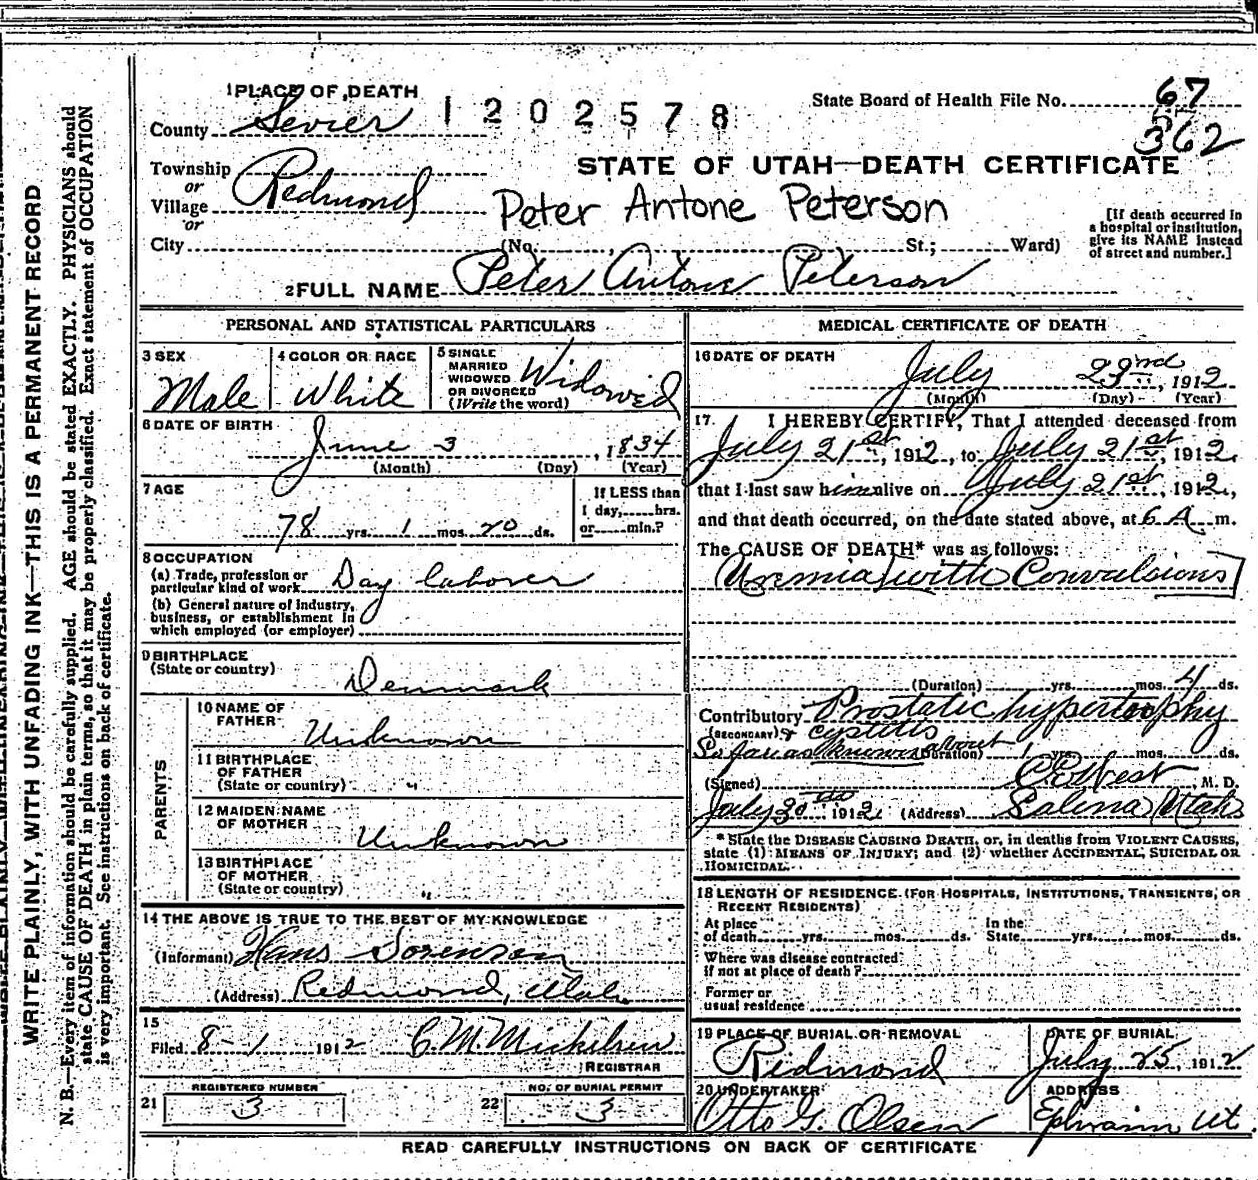 1 PLACE OF DEATH
County Sevier
1202578
State Board of Health File No. 67
57
362
Township
or
Village Redmond
or
City (No. , St.; Ward)
STATE OF UTAH—DEATH CERTIFICATE
Peter Antone Peterson
[If death occurred in
a hospital or institution,
give its NAME instead
of street and number.]
2 FULL NAME Peter Antone Peterson
PERSONAL AND STATISTICAL PARTICULARS
3 SEX
Male
4 COLOR OR RACE
White
5 SINGLE
MARRIED
WIDOWED
OR DIVORCED
(Write the word)
Widowed
6 DATE OF BIRTH
June 3, 1834
(Month) (Day) (Year)
7 AGE
78 yrs. 1 mos. 20 ds.
If LESS than
1 day, hrs.
or min.?
8 OCCUPATION
(a) Trade, profession or
particular kind of work Day laborer
(b) General nature of industry,
business, or establishment in
which employed (or employer)
9 BIRTHPLACE
(State or country)
Denmark
PARENTS
10 NAME OF
FATHER
Unknown
11 BIRTHPLACE
OF FATHER
(State or country) "
12 MAIDEN NAME
OF MOTHER
Unknown
13 BIRTHPLACE
OF MOTHER
(State or country) "
14 THE ABOVE IS TRUE TO THE BEST OF MY KNOWLEDGE
(Informant) Hans Sorenson
(Address) Redmond, Utah
15
Filed 8-1 1912 C. M. Mickelsen
REGISTRAR
REGISTERED NUMBER
21 3
NO. OF BURIAL PERMIT
22 3
MEDICAL CERTIFICATE OF DEATH
16 DATE OF DEATH
July 23rd, 1912
(Month) (Day) (Year)
17. I HEREBY CERTIFY, That I attended deceased from
July 21st, 1912, to July 21st, 1912,
that I last saw him alive on July 21st, 1912,
and that death occurred, on the date stated above, at 6 A m.
The CAUSE OF DEATH* was as follows:
Uremia [with Convulsions]
(Duration) yrs. mos. 4 ds.
Contributory Prostatic hypertrophy
(SECONDARY) & cystitis
So far as known about (Duration) 1 yrs. mos. ds.
(Signed) West, M. D.
July 30 1912 (Address) Salina Utah
* State the DISEASE CAUSING DEATH, or, in deaths from VIOLENT CAUSES,
state (1) MEANS OF INJURY; and (2) whether ACCIDENTAL, SUICIDAL OR
HOMICIDAL.
18 LENGTH OF RESIDENCE (FOR HOSPITALS, INSTITUTIONS, TRANSIENTS, OR
RECENT RESIDENTS)
At place
of death yrs. mos. ds.
In the
State yrs. mos. ds.
Where was disease contracted
if not at place of death?
Former or
usual residence
19 PLACE OF BURIAL OR REMOVAL
Redmond
DATE OF BURIAL
July 25, 1912
20 UNDERTAKER
Otto G. Olsen
ADDRESS
Ephraim Ut.
READ CAREFULLY INSTRUCTIONS ON BACK OF CERTIFICATE
WRITE PLAINLY, WITH UNFADING INK—THIS IS A PERMANENT RECORD
N. B.—Every item of information should be carefully supplied. AGE should be stated EXACTLY. PHYSICIANS should
state CAUSE OF DEATH in plain terms, so that it may be properly classified. Exact statement of OCCUPATION
is very important. See instructions on back of certificate.